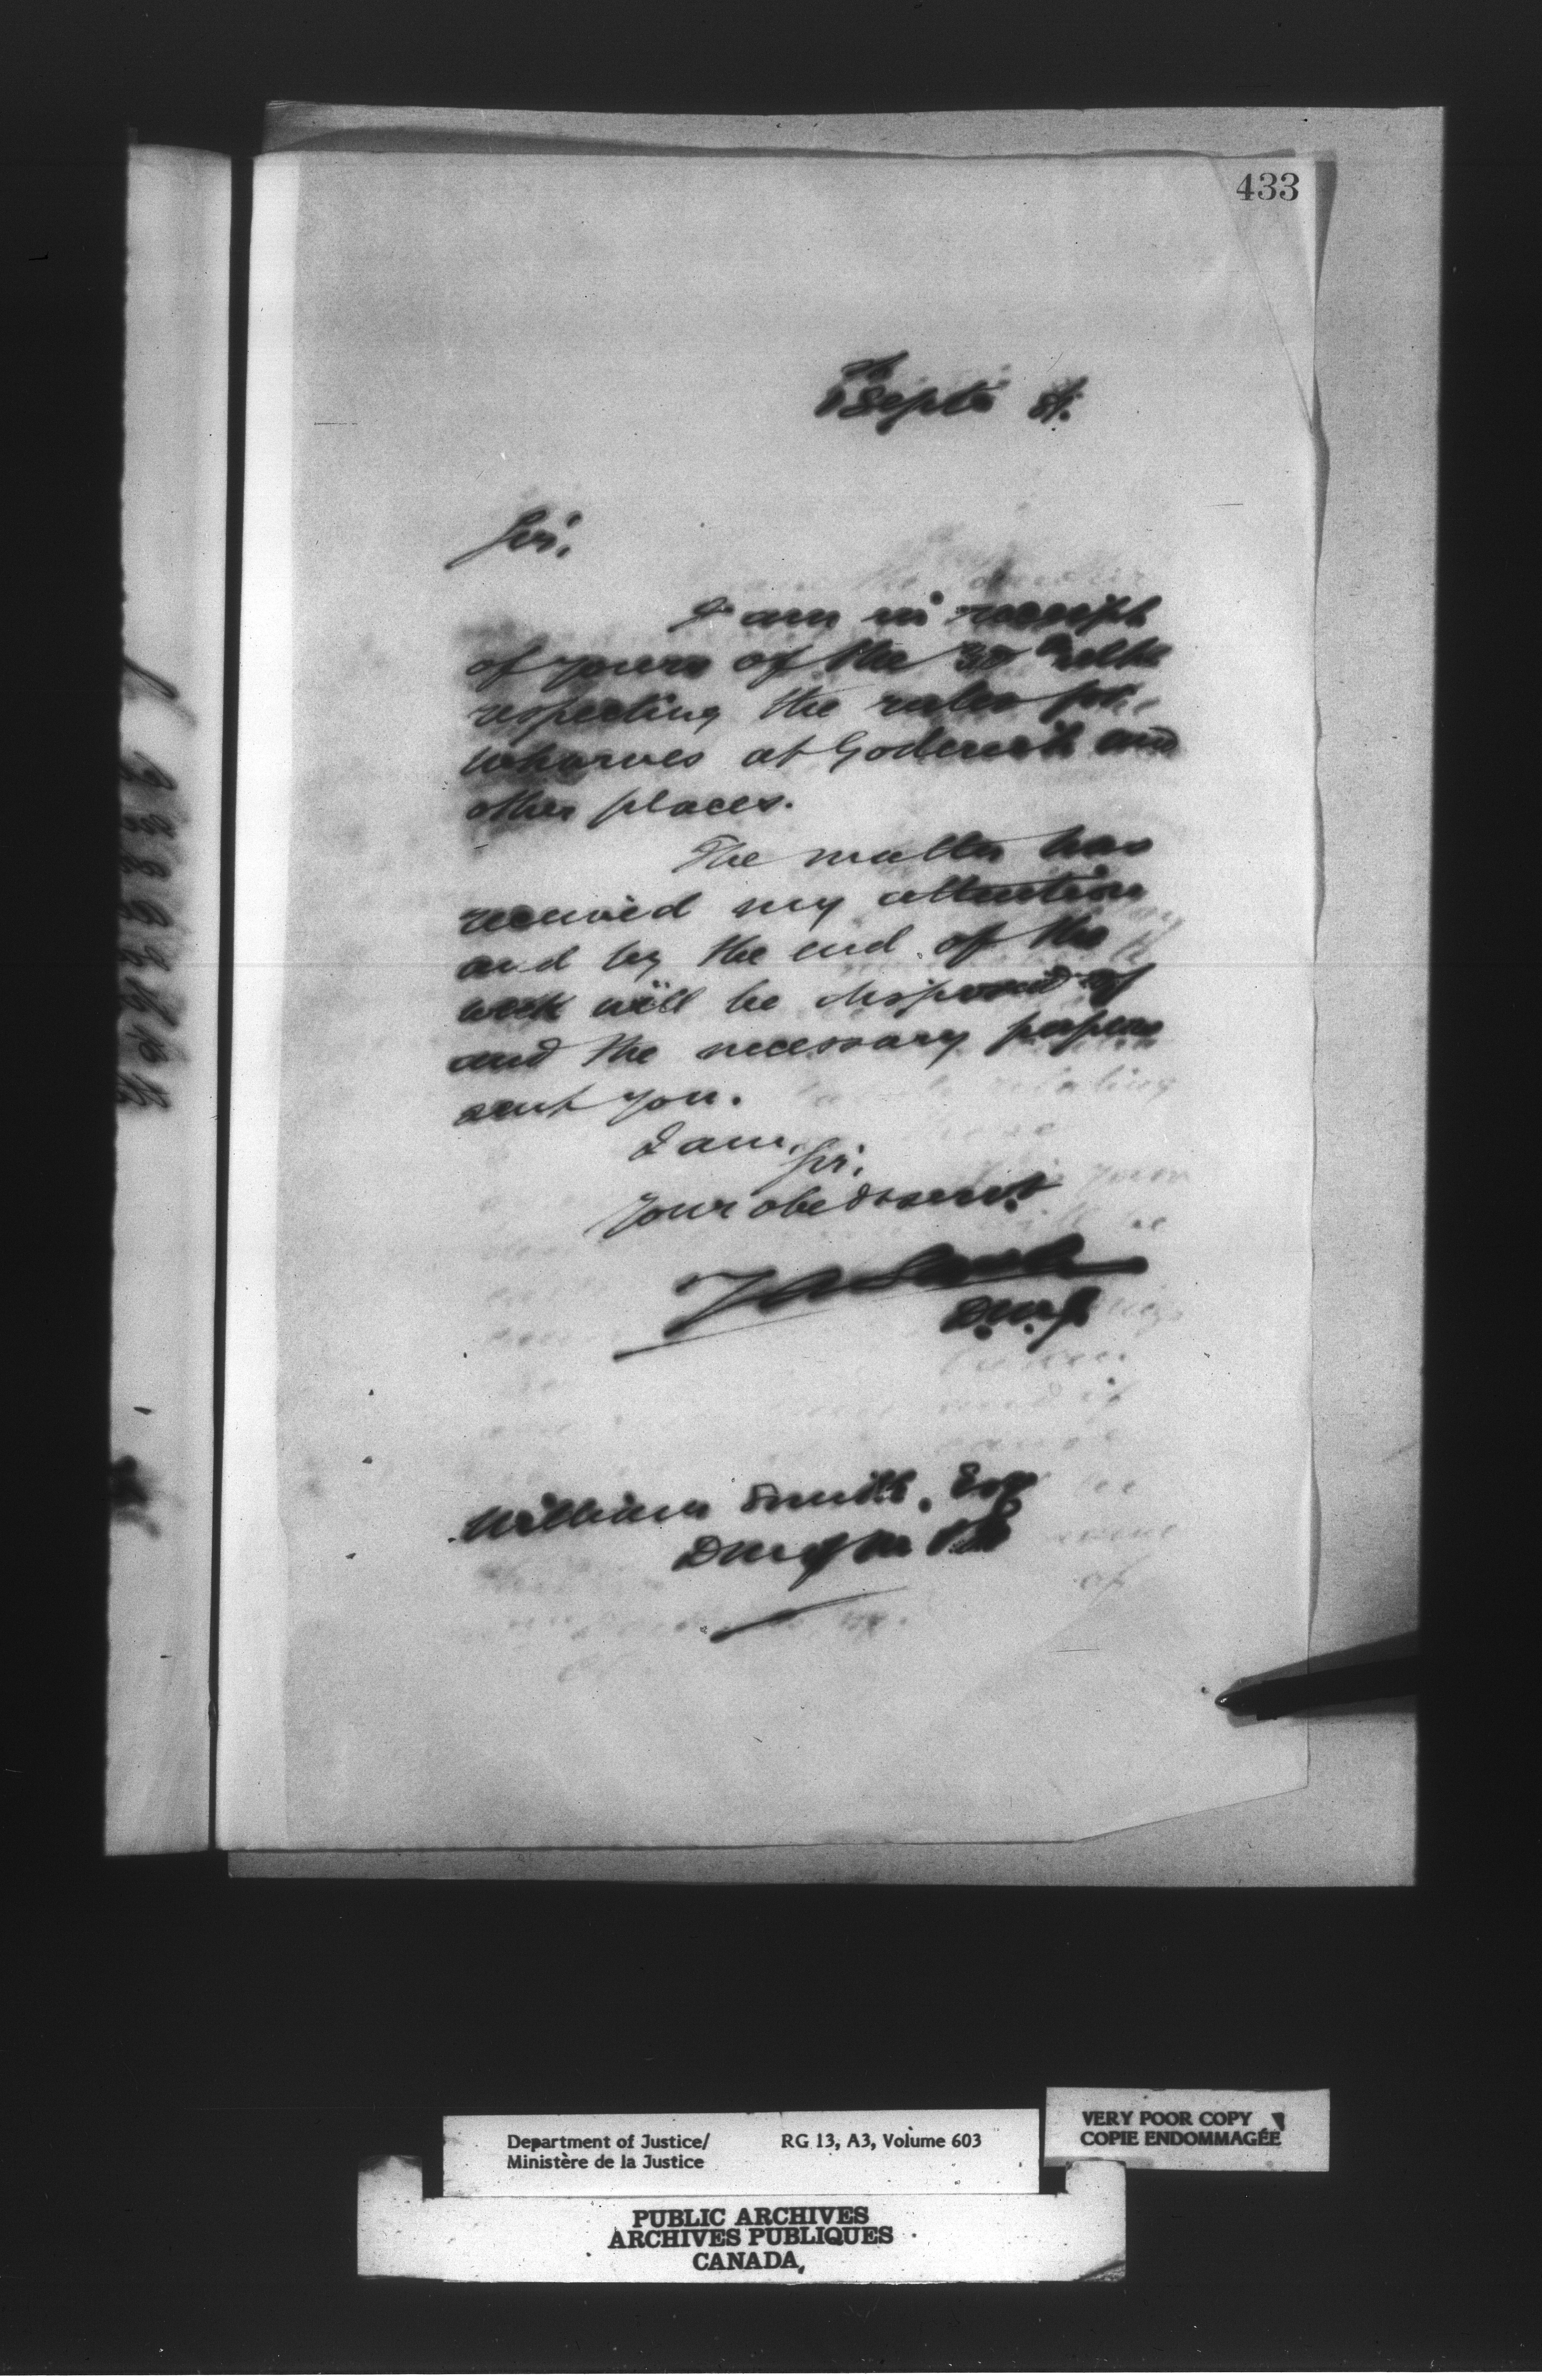 433
Septr 81.
Sir,
I am in receipt
of yours of the 30th ulto
respecting the rules for
wharves at Goderich and
other places.
The matter has
received my attention
and by the end of the
week will be disposed of
and the necessary papers
sent you.
I am,
Sir,
Your obed servt
D.M.J.
William Smith, Esq
D M of M &
Department of Justice/
Ministère de la Justice
RG 13, A3, Volume 603
VERY POOR COPY
COPIE ENDOMMAGÉE
PUBLIC ARCHIVES
ARCHIVES PUBLIQUES
CANADA